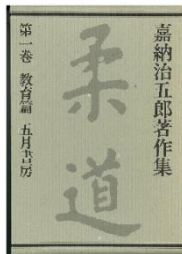 嘉納治五郎著作集
柔道
第一巻 教育篇 五月書房